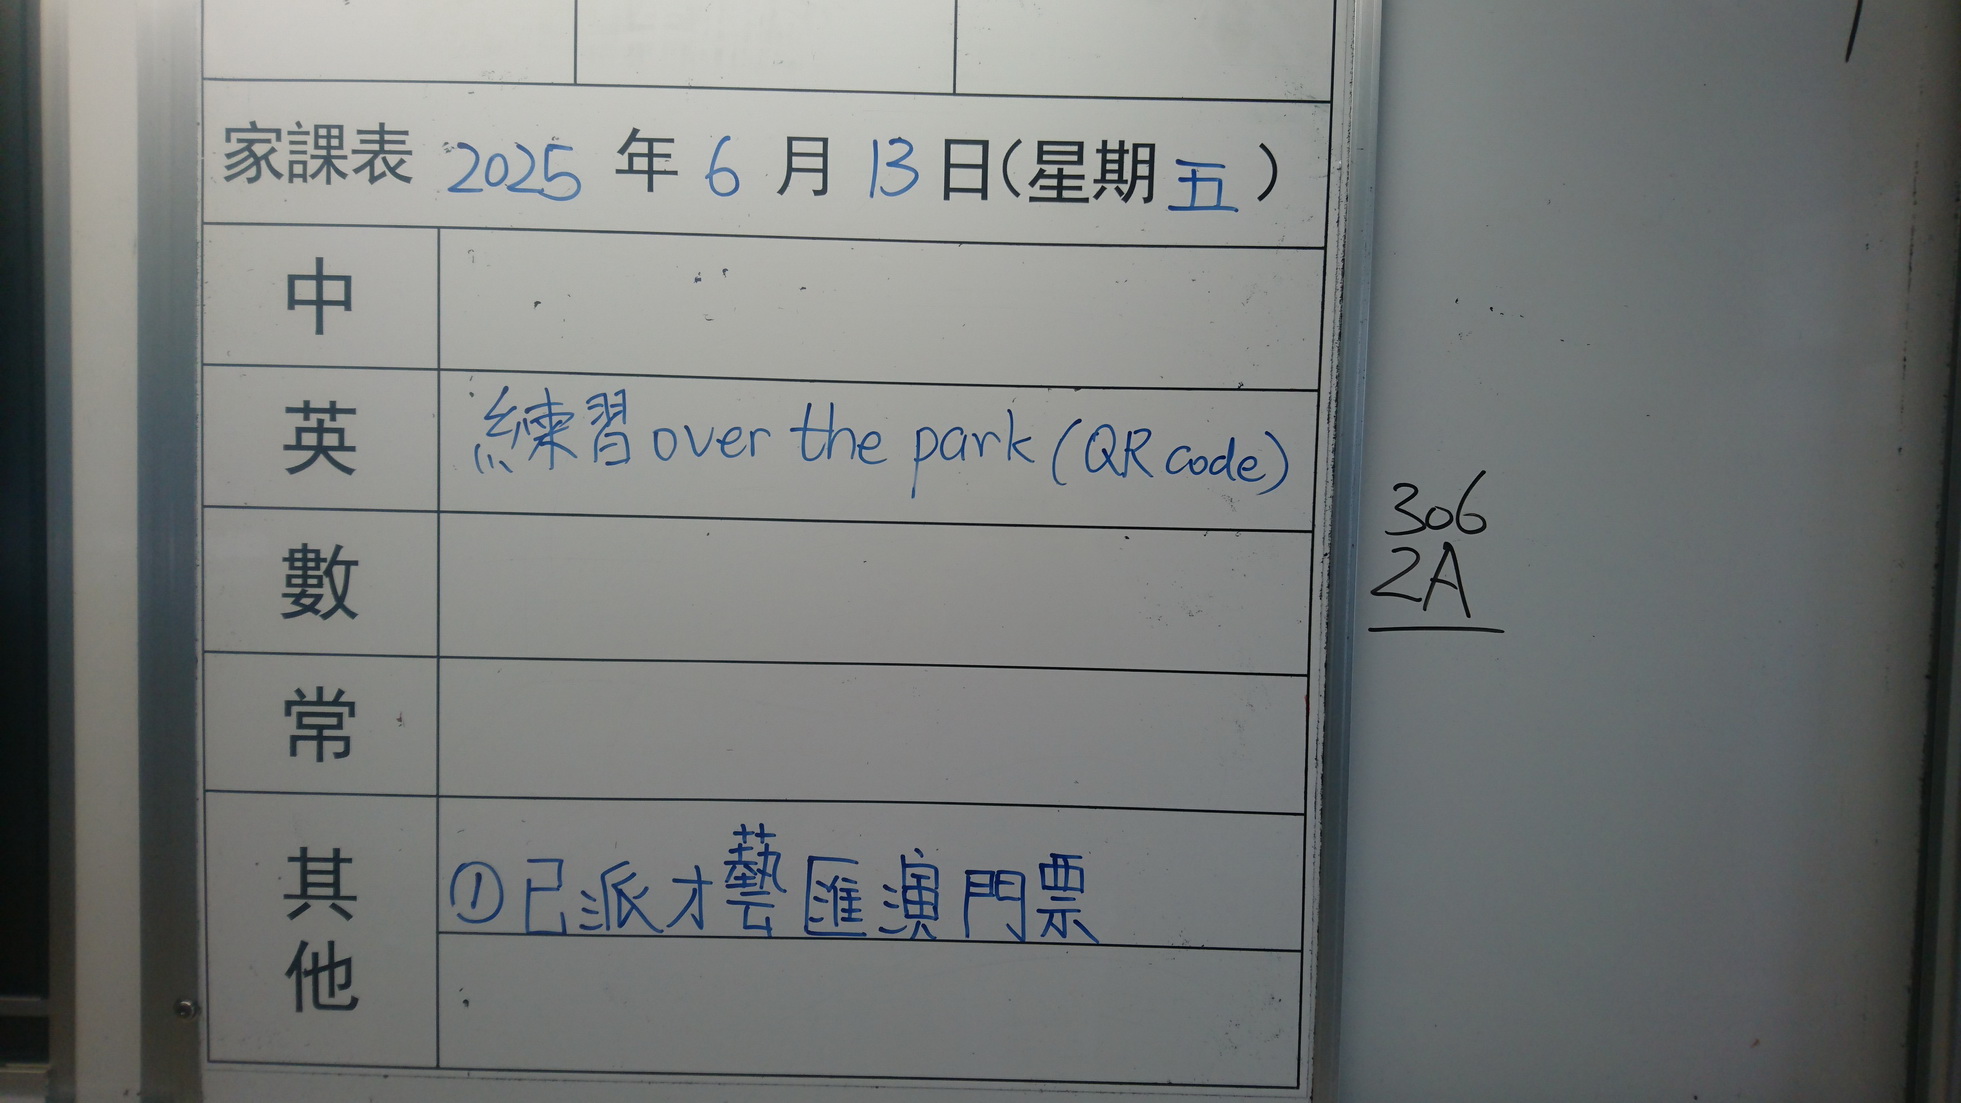 家課表 2025 年 6 月 13 日(星期五)
中
英 練習 over the park (QR code)
數
常
其他 ①已派才藝匯演門票
306
2A